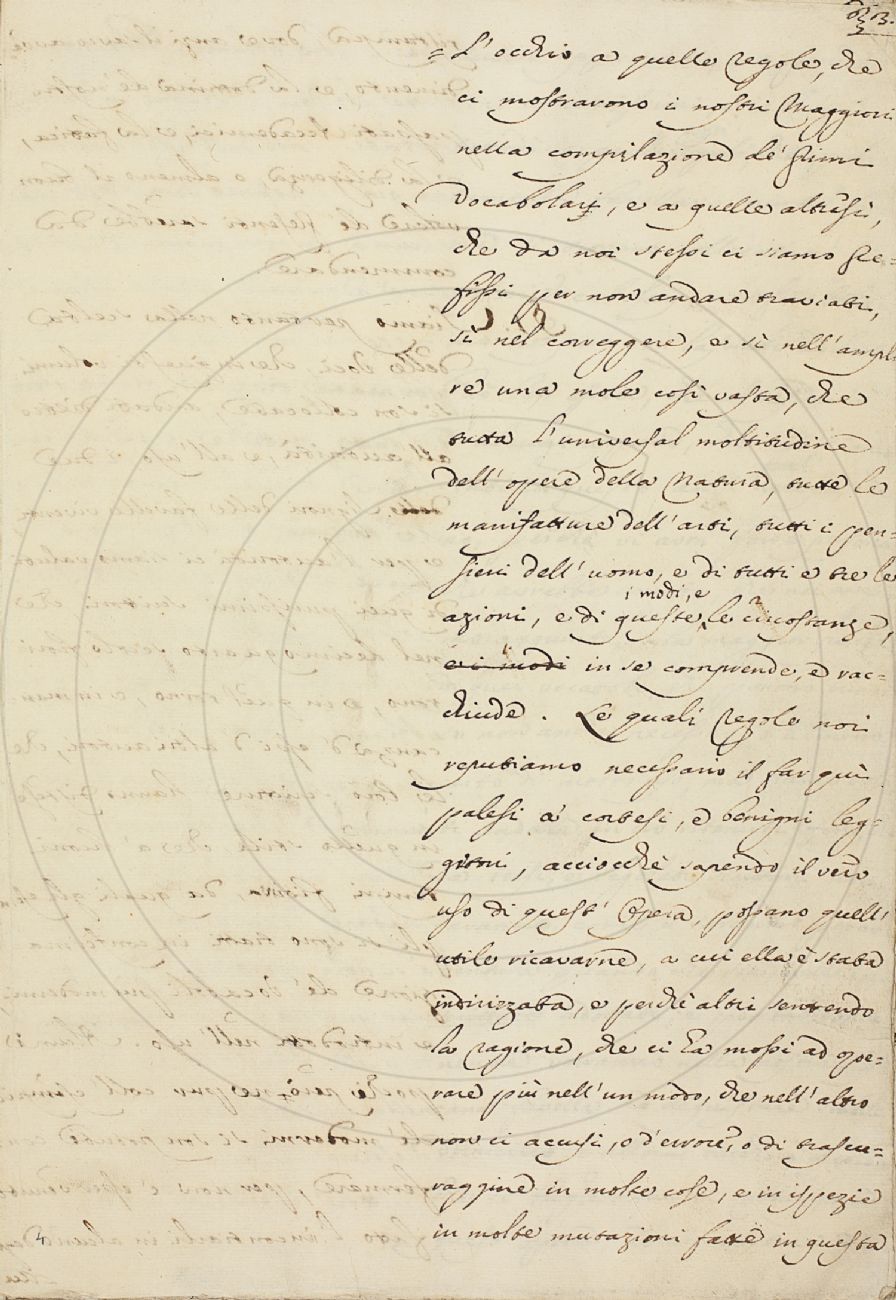 = L'occhio a quelle regole, che
ci mostravono i nostri Maggiori
nella compilazione de' primi
Vocabolarj, e a quelle altresì,
che da noi stessi ci siamo pre=
fissi per non andare traviati,
sì nel correggere, e sì nell'ampli
re una mole così vasta, che
tutta l'universal moltitudine
dell'opere della Natura, tutte le
manifatture dell'arti, tutti i pen=
sieri dell'uomo, e di tutti e tre le
i modi, e
azioni, e di queste le circostanze,
e i modi in se comprende, e rac=
chiude. Le quali regole noi
reputiamo necessario il far quì
palesi a' cortesi, e benigni leg=
gitori, acciocchè sapendo il vero
uso di quest'Opera, possano quell'
utile ricavarne, a cui ella è stata
indirizzata, e perchè altri sentendo
la ragione, che ci ha mossi ad ope=
rare più nell'un modo, che nell'altro
non ci accusi, o d'errore, o di trascu=
raggine in molte cose, e in ispezie
in molte mutazioni fatte in questa